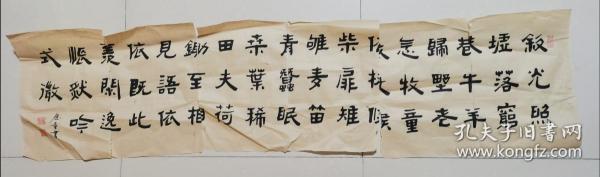 斜光照
墟落窮
巷牛羊
歸野老
念牧童
倚杖候
柴扉雉
雊麥苗
青蠶眠
桒葉稀
田夫荷
鋤至相
見語依
依既此
羨閑逸
悵然吟
式微
孔夫子旧书网
www.kongfz.com